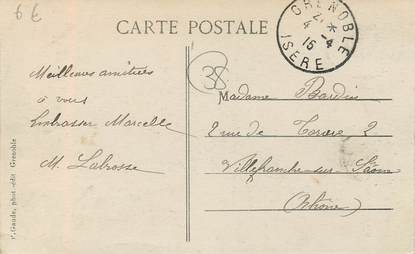 6 €
CARTE POSTALE
GRENOBLE
21 *
4 -4
16
ISERE
38
Meilleures amitiés
à vous
embrasser Marcelle
M. Labrosse
Madame Bardin
2 rue de 2
Villefranche-sur-Saône
(Rhône)
Gaude, phot.-édit Grenoble